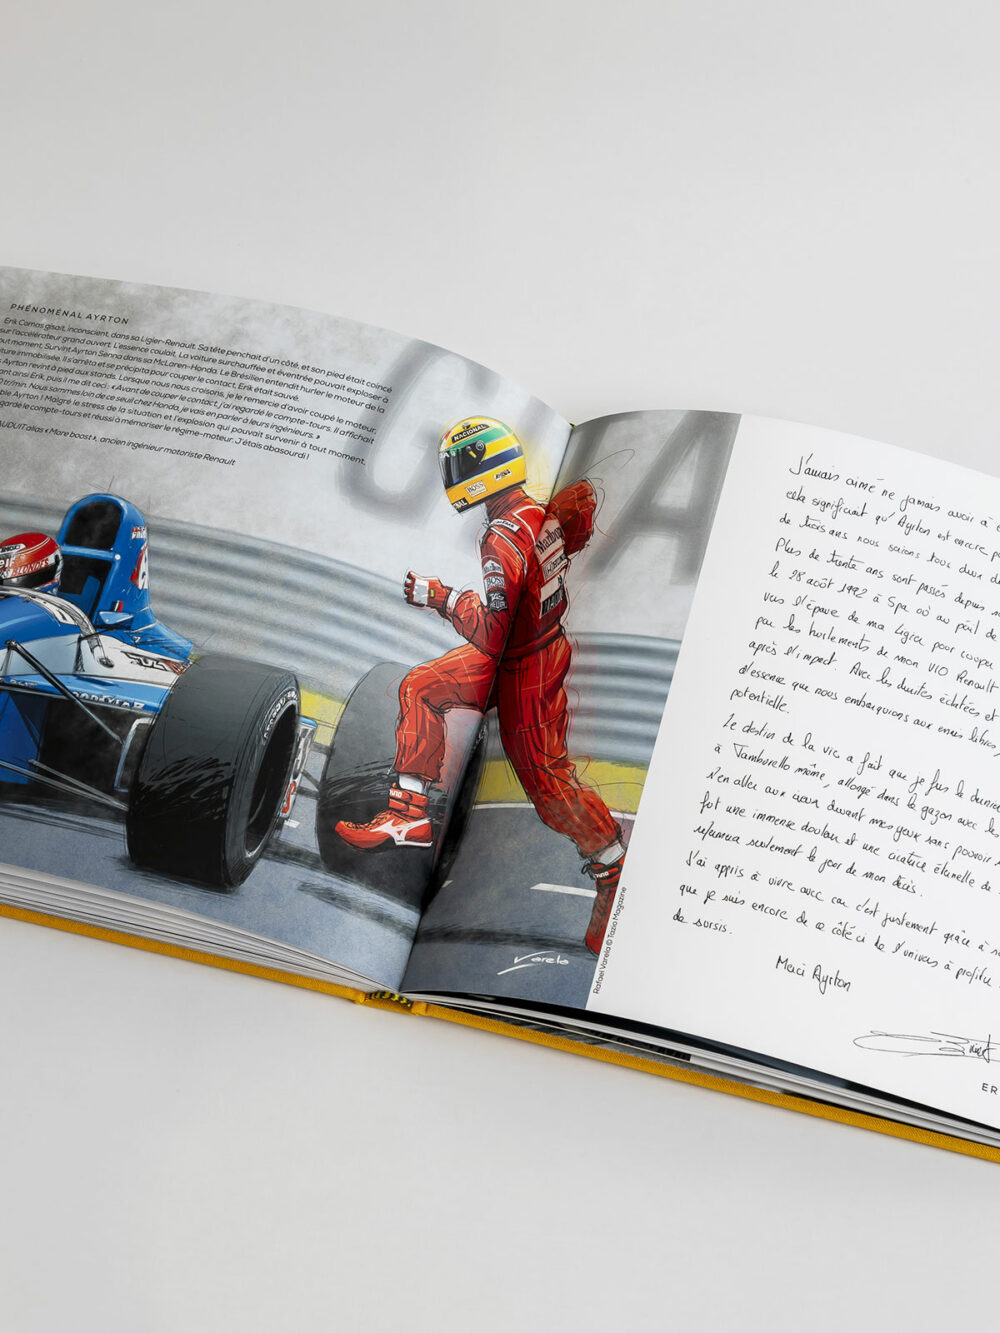 PHÉNOMÉNAL AYRTON
Erik Comas gisait, inconscient, dans sa Ligier-Renault. Sa tête penchait d'un côté, et son pied était coincé
sur l'accélérateur grand ouvert. L'essence coulait. La voiture surchauffée et éventrée pouvait exploser à
tout moment. Survint Ayrton Senna dans sa McLaren-Honda. Le Brésilien entendit hurler le moteur de la
voiture immobilisée. Il s'arrêta et se précipita pour couper le contact, Erik était sauvé.
Ayrton revint à pied aux stands. Lorsque nous nous croisons, je le remercie d'avoir coupé le moteur,
ant ainsi Erik, puis il me dit ceci : « Avant de couper le contact, j'ai regardé le compte-tours. Il affichait
0 tr/min. Nous sommes loin de ceux de chez Honda, je vais en parler à leurs ingénieurs. »
ble Ayrton ! Malgré le stress de la situation et l'explosion qui pouvait survenir à tout moment,
egardé le compte-tours et réussi à mémoriser le régime-moteur. J'étais abasourdi !
UDUIT alias « More boost », ancien ingénieur motoriste Renault
NACIONAL
BOSS
Marlboro
BOSS
TAG
HEUER
GOODYEAR
BLONDES
Varela
Rafael Varela © Tazio Magazine
J'aurais aimé ne jamais avoir à
cela signifierait qu'Ayrton est encore
de trois ans nous serions tous deux
Plus de trente ans sont passés depuis
le 28 août 1992 à Spa où au péril de
vers l'épave de ma Ligier pour couper
par les hurlements de mon V10 Renault
après l'impact. Avec les durites éclatées et
d'essence que nous embarquions aux essais libres,
potentielle.
Le destin de la vie a fait que je fus le dernier
à Tamburello même, allongé dans le gazon avec les
s'en aller aux cieux devant mes yeux sans pouvoir
fut une immense douleur et une cicatrice éternelle
refermera seulement le jour de mon décès.
J'ai appris à vivre avec car c'est justement grâce à
que je suis encore de ce côté ci de l'univers à profiter
de sursis.
Merci Ayrton
ER